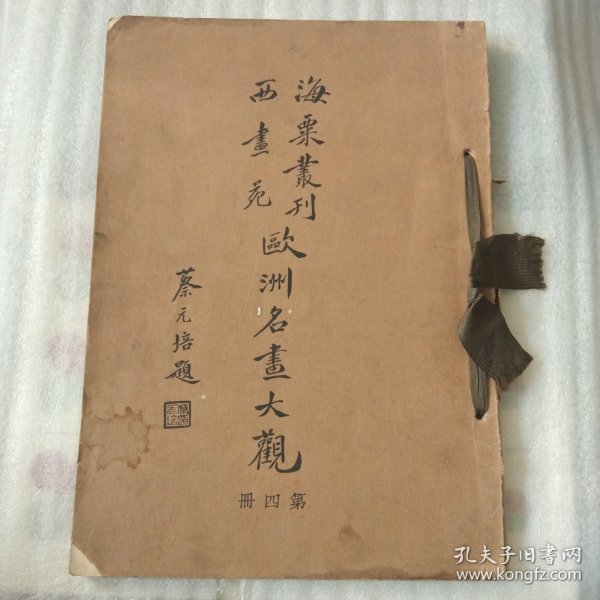 海粟叢刊
西畫苑
歐洲名畫大觀
第四冊
蔡元培題
孔夫子旧书网
www.kongfz.com